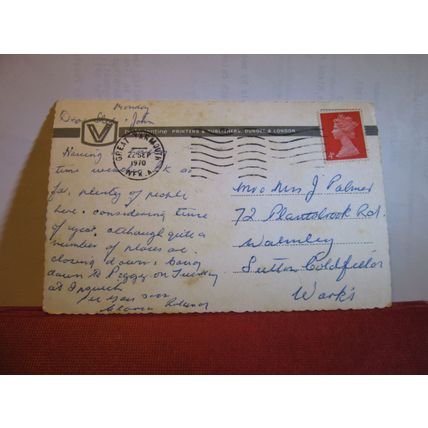 Monday
Dear & John
V
Valentine PRINTERS & PUBLISHERS, DUNDEE & LONDON
GREAT YARMOUTH
22 SEP
1970
4d
Having
time
far, plenty of people
here, considering time
of year, although quite a
number of places are
closing down. Going
down to Peggy on Tuesday
at Ipswich
See you soon
Mr & Mrs J Palmer
72 Plantsbrook Rd.
Walmley
Sutton Coldfield
Wark's